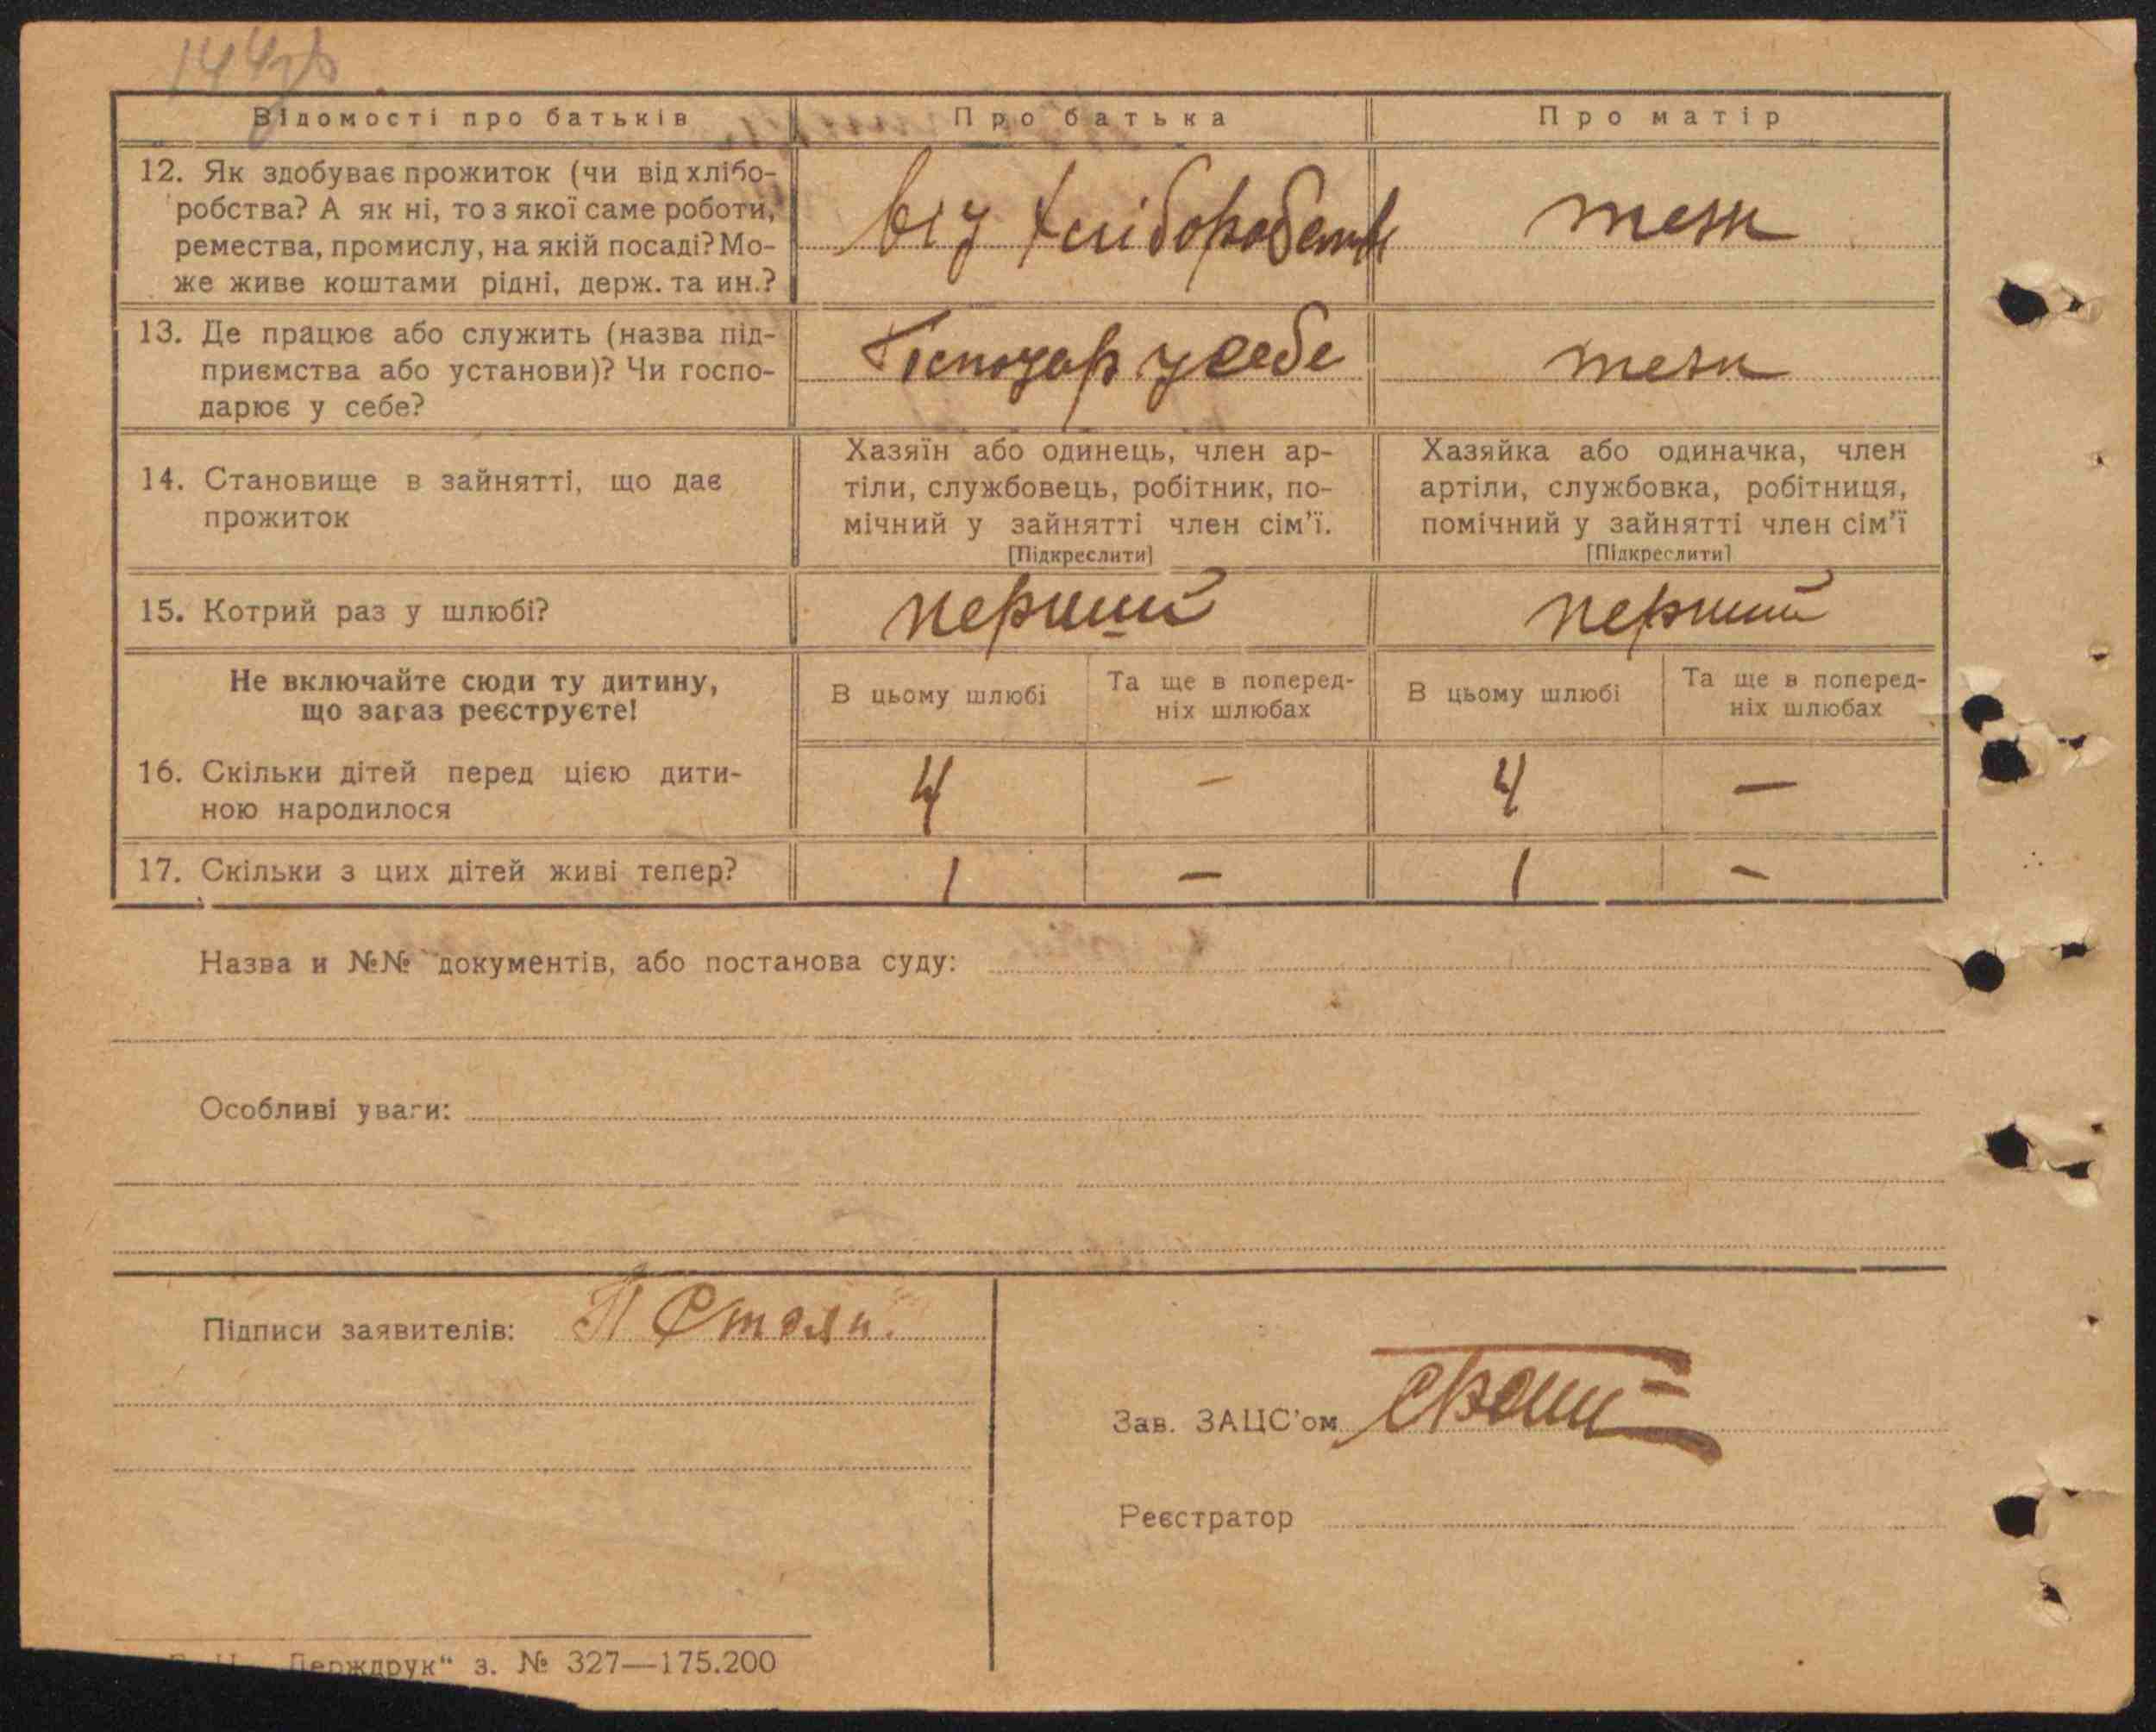 144зв
Відомості про батьків
Про батька
Про матір
12. Як здобуває прожиток (чи від хлібо-
робства? А як ні, то з якої саме роботи,
ремества, промислу, на якій посаді? Мо-
же живе коштами рідні, держ. та ин.?
від хліборобства
теж
13. Де працює або служить (назва під-
приємства або установи)? Чи госпо-
дарює у себе?
Господар у себе
теж
14. Становище в зайнятті, що дає
прожиток
Хазяїн або одинець, член ар-
тіли, службовець, робітник, по-
мічний у зайнятті член сім’ї.
[Підкреслити]
Хазяйка або одиначка, член
артіли, службовка, робітниця,
помічний у зайнятті член сім’ї
[Підкреслити]
15. Котрий раз у шлюбі?
перший
перший
Не включайте сюди ту дитину,
що зараз реєструєте!
В цьому шлюбі
Та ще в поперед-
ніх шлюбах
В цьому шлюбі
Та ще в поперед-
ніх шлюбах
16. Скільки дітей перед цією дити-
ною народилося
4 — 4 —
17. Скільки з цих дітей живі тепер?
1 — 1 —
Назва и №№ документів, або постанова суду:
Особливі уваги:
Підписи заявителів: П
Зав. ЗАЦС’ом
Реєстратор
Держдрук“ з. № 327—175.200